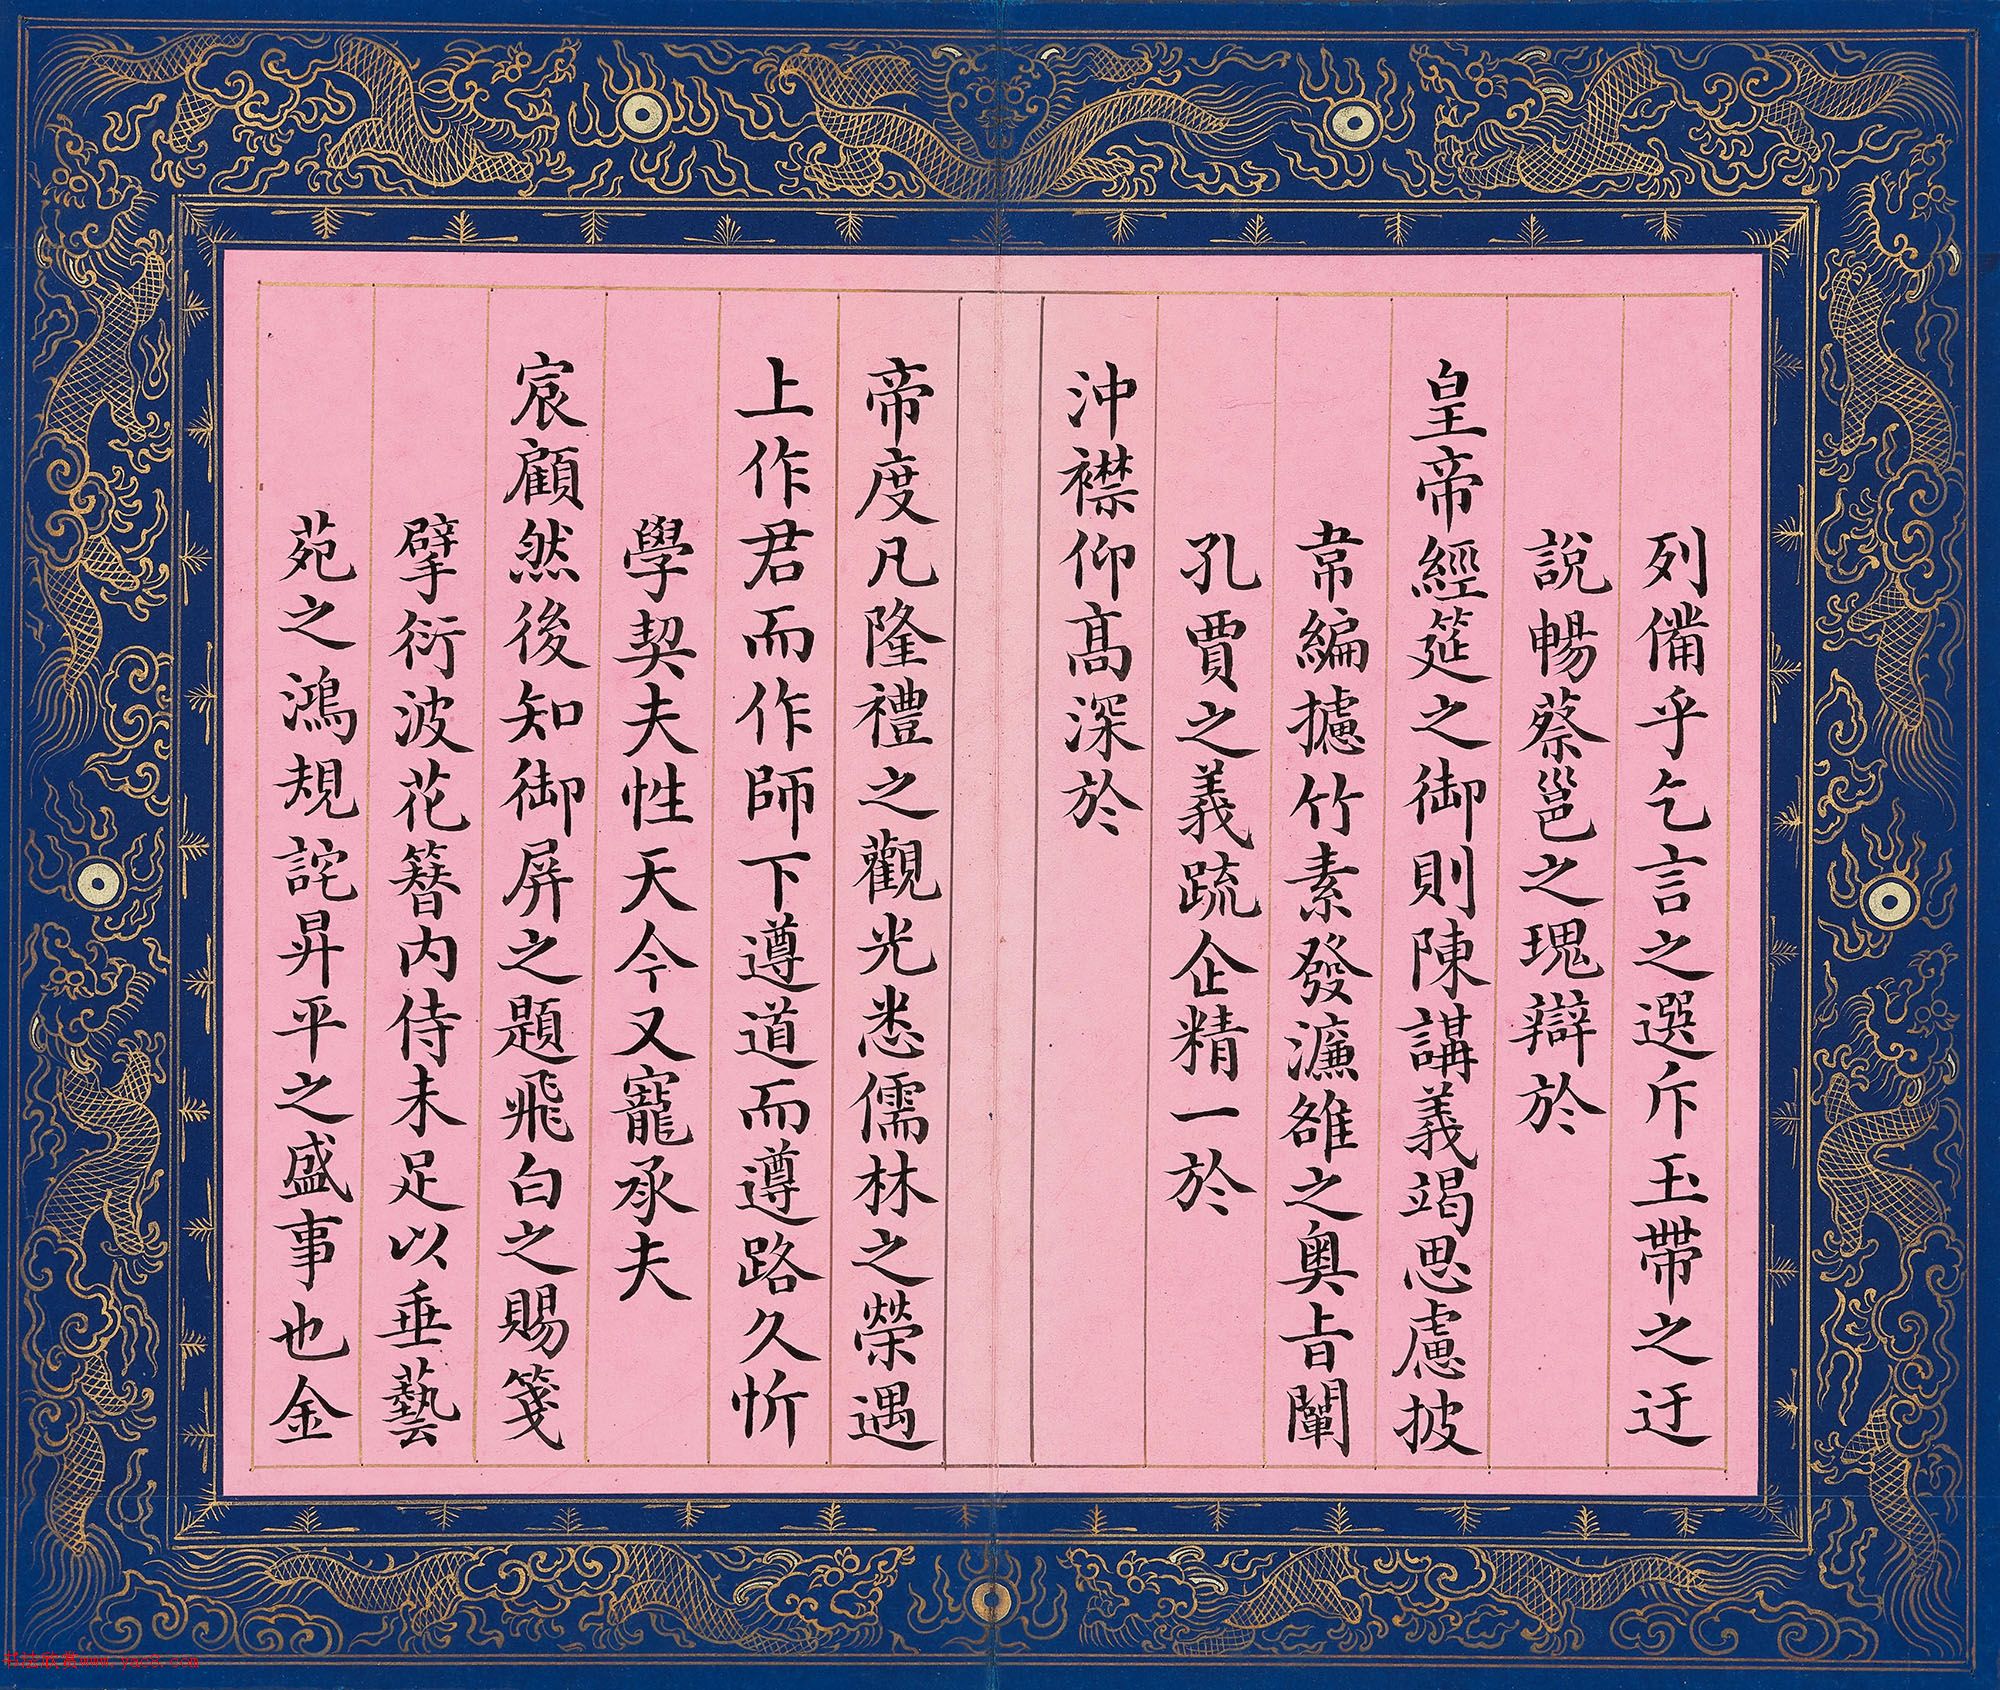 列備乎乞言之選斥玉帶之迂
說暢蔡邕之瑰辯於
皇帝經筵之御則陳講義竭思慮披
韋編攄竹素發濂雒之奧旨闡
孔賈之義疏企精一於
沖襟仰高深於
帝度凡隆禮之觀光悉儒林之榮遇
上作君而作師下遵道而遵路久忻
學契夫性天今又寵承夫
宸顧然後知御屏之題飛白之賜箋
擘衍波花簪内侍未足以垂藝
苑之鴻規詫昇平之盛事也金
书法欣赏www.yac8.com